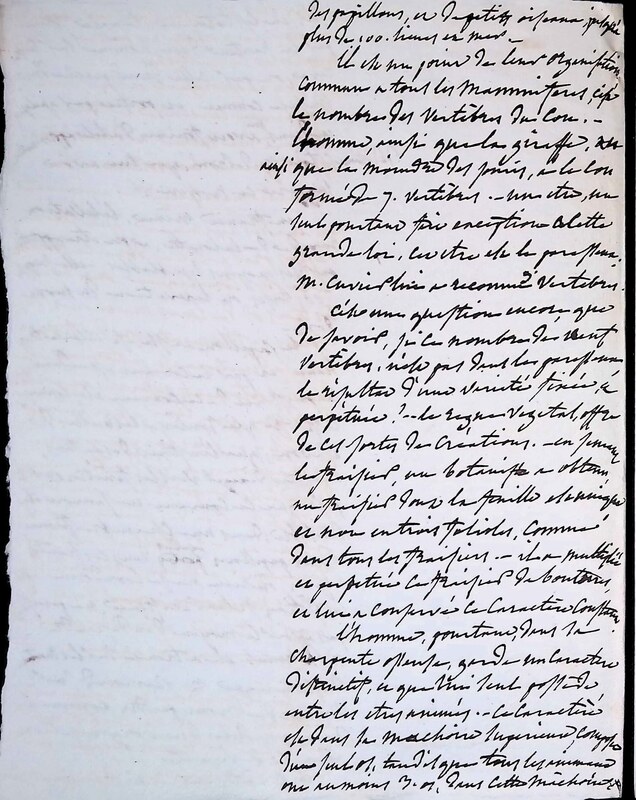 des papillons, et de petits oiseaux, jusqu'à
plus de 100. lieues en mer. -
Il est un point de leur organisation
commun a tous les Mammiferes, c'est
le nombre des vertèbres du Cou. -
L'homme, ainsi que la giraffe,
ainsi que la moindre des souris, a le Cou
formé de 7. vertèbres. - un etre, un
seul pourtant fait exception a Cette
grande loi, Cet etre est le paresseux.
M. Cuvier lui a reconnu 9 vertebres.
C'est une question encore que
de savoir, si Ce nombre de neuf
vertèbres, n'est pas dans les paresseux
le résultat d'une variété fixée, et
perpétuée? - le regne vegetal, offre
de Ces sortes de Créations. - en semant
le fraisier, un botaniste a obtenu
un fraisier dont la feuille est unique
et non en trois folioles, Comme
dans tous les fraisiers. - il a multiplié
et perpétué Ce fraisier de boutures
et lui a Conservé Ce Caractère Constant.
L'homme, pourtant, dans sa
charpente osseuse, garde un Caractere
distinctif, et que lui seul possède
entre les etres animés. - Ce Caractère
est dans sa machoire Superieure, Composée
d'un seul os, tandis que tous les animaux
ont au moins 3. os, dans Cette Machoire